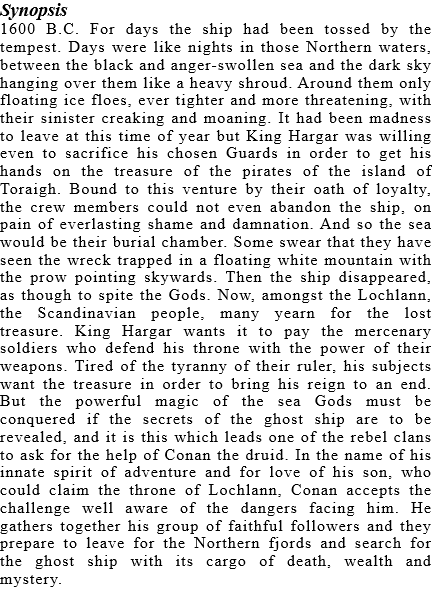 Synopsis
1600 B.C. For days the ship had been tossed by the
tempest. Days were like nights in those Northern waters,
between the black and anger-swollen sea and the dark sky
hanging over them like a heavy shroud. Around them only
floating ice floes, ever tighter and more threatening, with
their sinister creaking and moaning. It had been madness
to leave at this time of year but King Hargar was willing
even to sacrifice his chosen Guards in order to get his
hands on the treasure of the pirates of the island of
Toraigh. Bound to this venture by their oath of loyalty,
the crew members could not even abandon the ship, on
pain of everlasting shame and damnation. And so the sea
would be their burial chamber. Some swear that they have
seen the wreck trapped in a floating white mountain with
the prow pointing skywards. Then the ship disappeared,
as though to spite the Gods. Now, amongst the Lochlann,
the Scandinavian people, many yearn for the lost
treasure. King Hargar wants it to pay the mercenary
soldiers who defend his throne with the power of their
weapons. Tired of the tyranny of their ruler, his subjects
want the treasure in order to bring his reign to an end.
But the powerful magic of the sea Gods must be
conquered if the secrets of the ghost ship are to be
revealed, and it is this which leads one of the rebel clans
to ask for the help of Conan the druid. In the name of his
innate spirit of adventure and for love of his son, who
could claim the throne of Lochlann, Conan accepts the
challenge well aware of the dangers facing him. He
gathers together his group of faithful followers and they
prepare to leave for the Northern fjords and search for
the ghost ship with its cargo of death, wealth and
mystery.